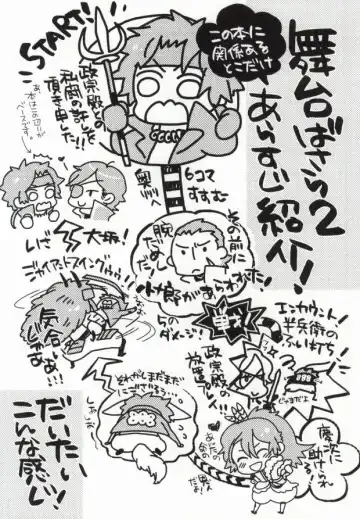 舞台ばさら2
あらすじ紹介!
この本に
関係ある
とこだけ
START!
政宗殿との
私闘の許しを
頂き申した!!
奥州
6コマ
すすむ
その前に
腕だめし
小十郎があらわれた!
いざ
大坂!
ジャイアントスイングゥゥ!!
気合じゃあぁ!!
5のダメージ!
エンカウント
半兵衛の
ふい打ち!
政宗殿の
放置プレイ!!
それがしまだまだ
慶次に
助けられ
だいたい
こんな感じ!